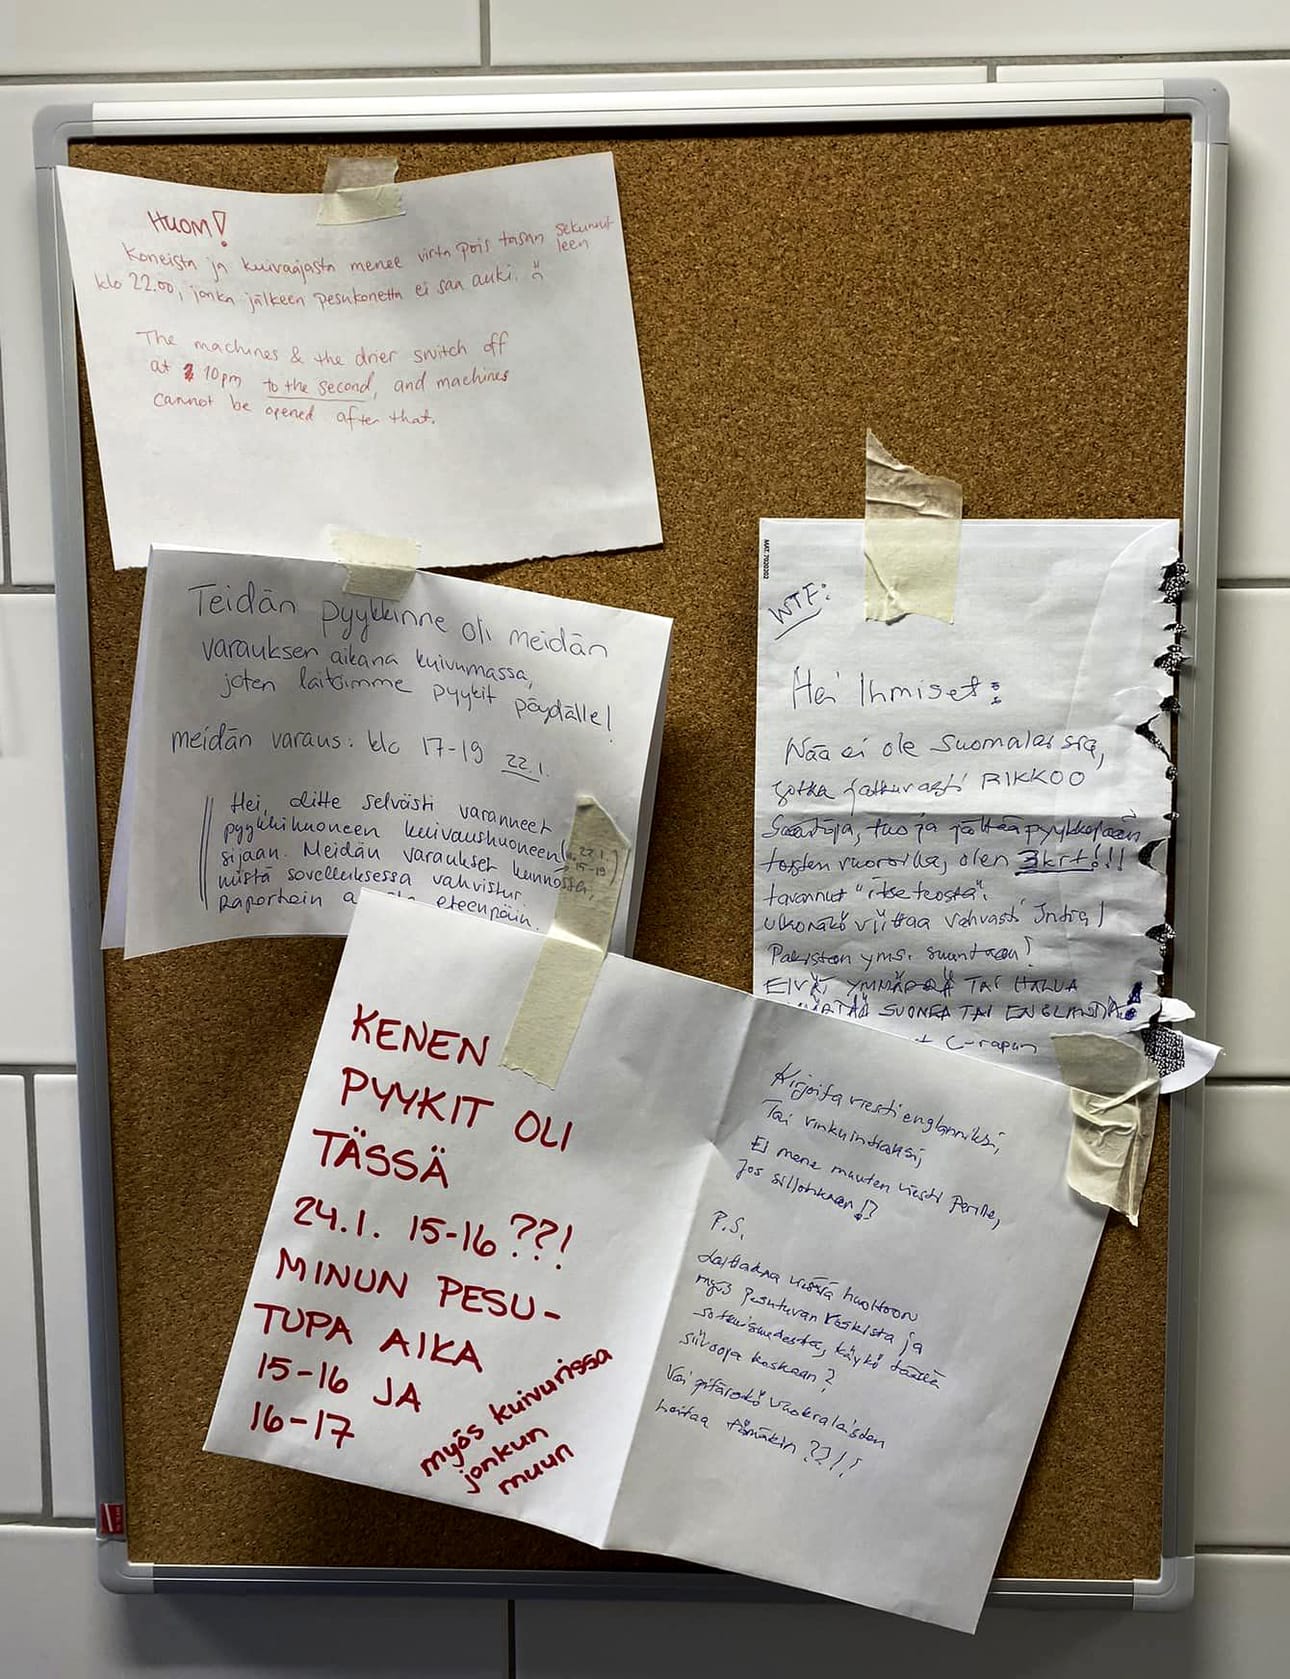 HUOM!
Koneista ja kuivaajasta menee virta pois tasan sekunnilleen
klo 22.00, jonka jälkeen pesukonetta ei saa auki.
The machines & the drier switch off
at 10pm to the second, and machines
cannot be opened after that.
Teidän pyykkinne oli meidän
varauksen aikana kuivumassa,
joten laitoimme pyykit pöydälle!
meidän varaus: klo 17-19 22.1.
Hei, olitte selvästi varanneet
pyykkihuoneen kuivaushuoneen
(22.1. 15-19)
sijaan. Meidän varaukset kunnossa,
niistä sovelluksessa vahvistus.
Raportoin eteenpäin.
MAT.7020202
WTF:
Hei Ihmiset:
Nää ei ole Suomalaisia,
jotka jatkuvasti RIKKOO
Sääntöjä, tuo ja jättää pyykkejään
toisten vuoroilla, olen 3krt!!!
tavannut "itse teosta".
Ulkonäkö viittaa vahvasti Intia/
Pakistan yms. suuntaan!
EIVÄT YMMÄRRÄ TAI HALUA
SUOMEA TAI ENGLANTIA!
C-rapun
KENEN
PYYKIT OLI
TÄSSÄ
24.1. 15-16 ??!
MINUN PESU-
TUPA AIKA
15-16 JA
16-17
myös kuivurissa
jonkun
muun
Kirjoita viesti englanniksi,
Tai vinkuintiaksi,
Ei mene muuten viesti perille,
Jos silloinkaan!?
P.S.
Laittakaa viestiä huoltoon
myös Pesutuvan
sotkuisuudesta, käykö täällä
siivooja koskaan?
Vai pitäröökö vuokralaisten
hoitaa tämäkin ??!!